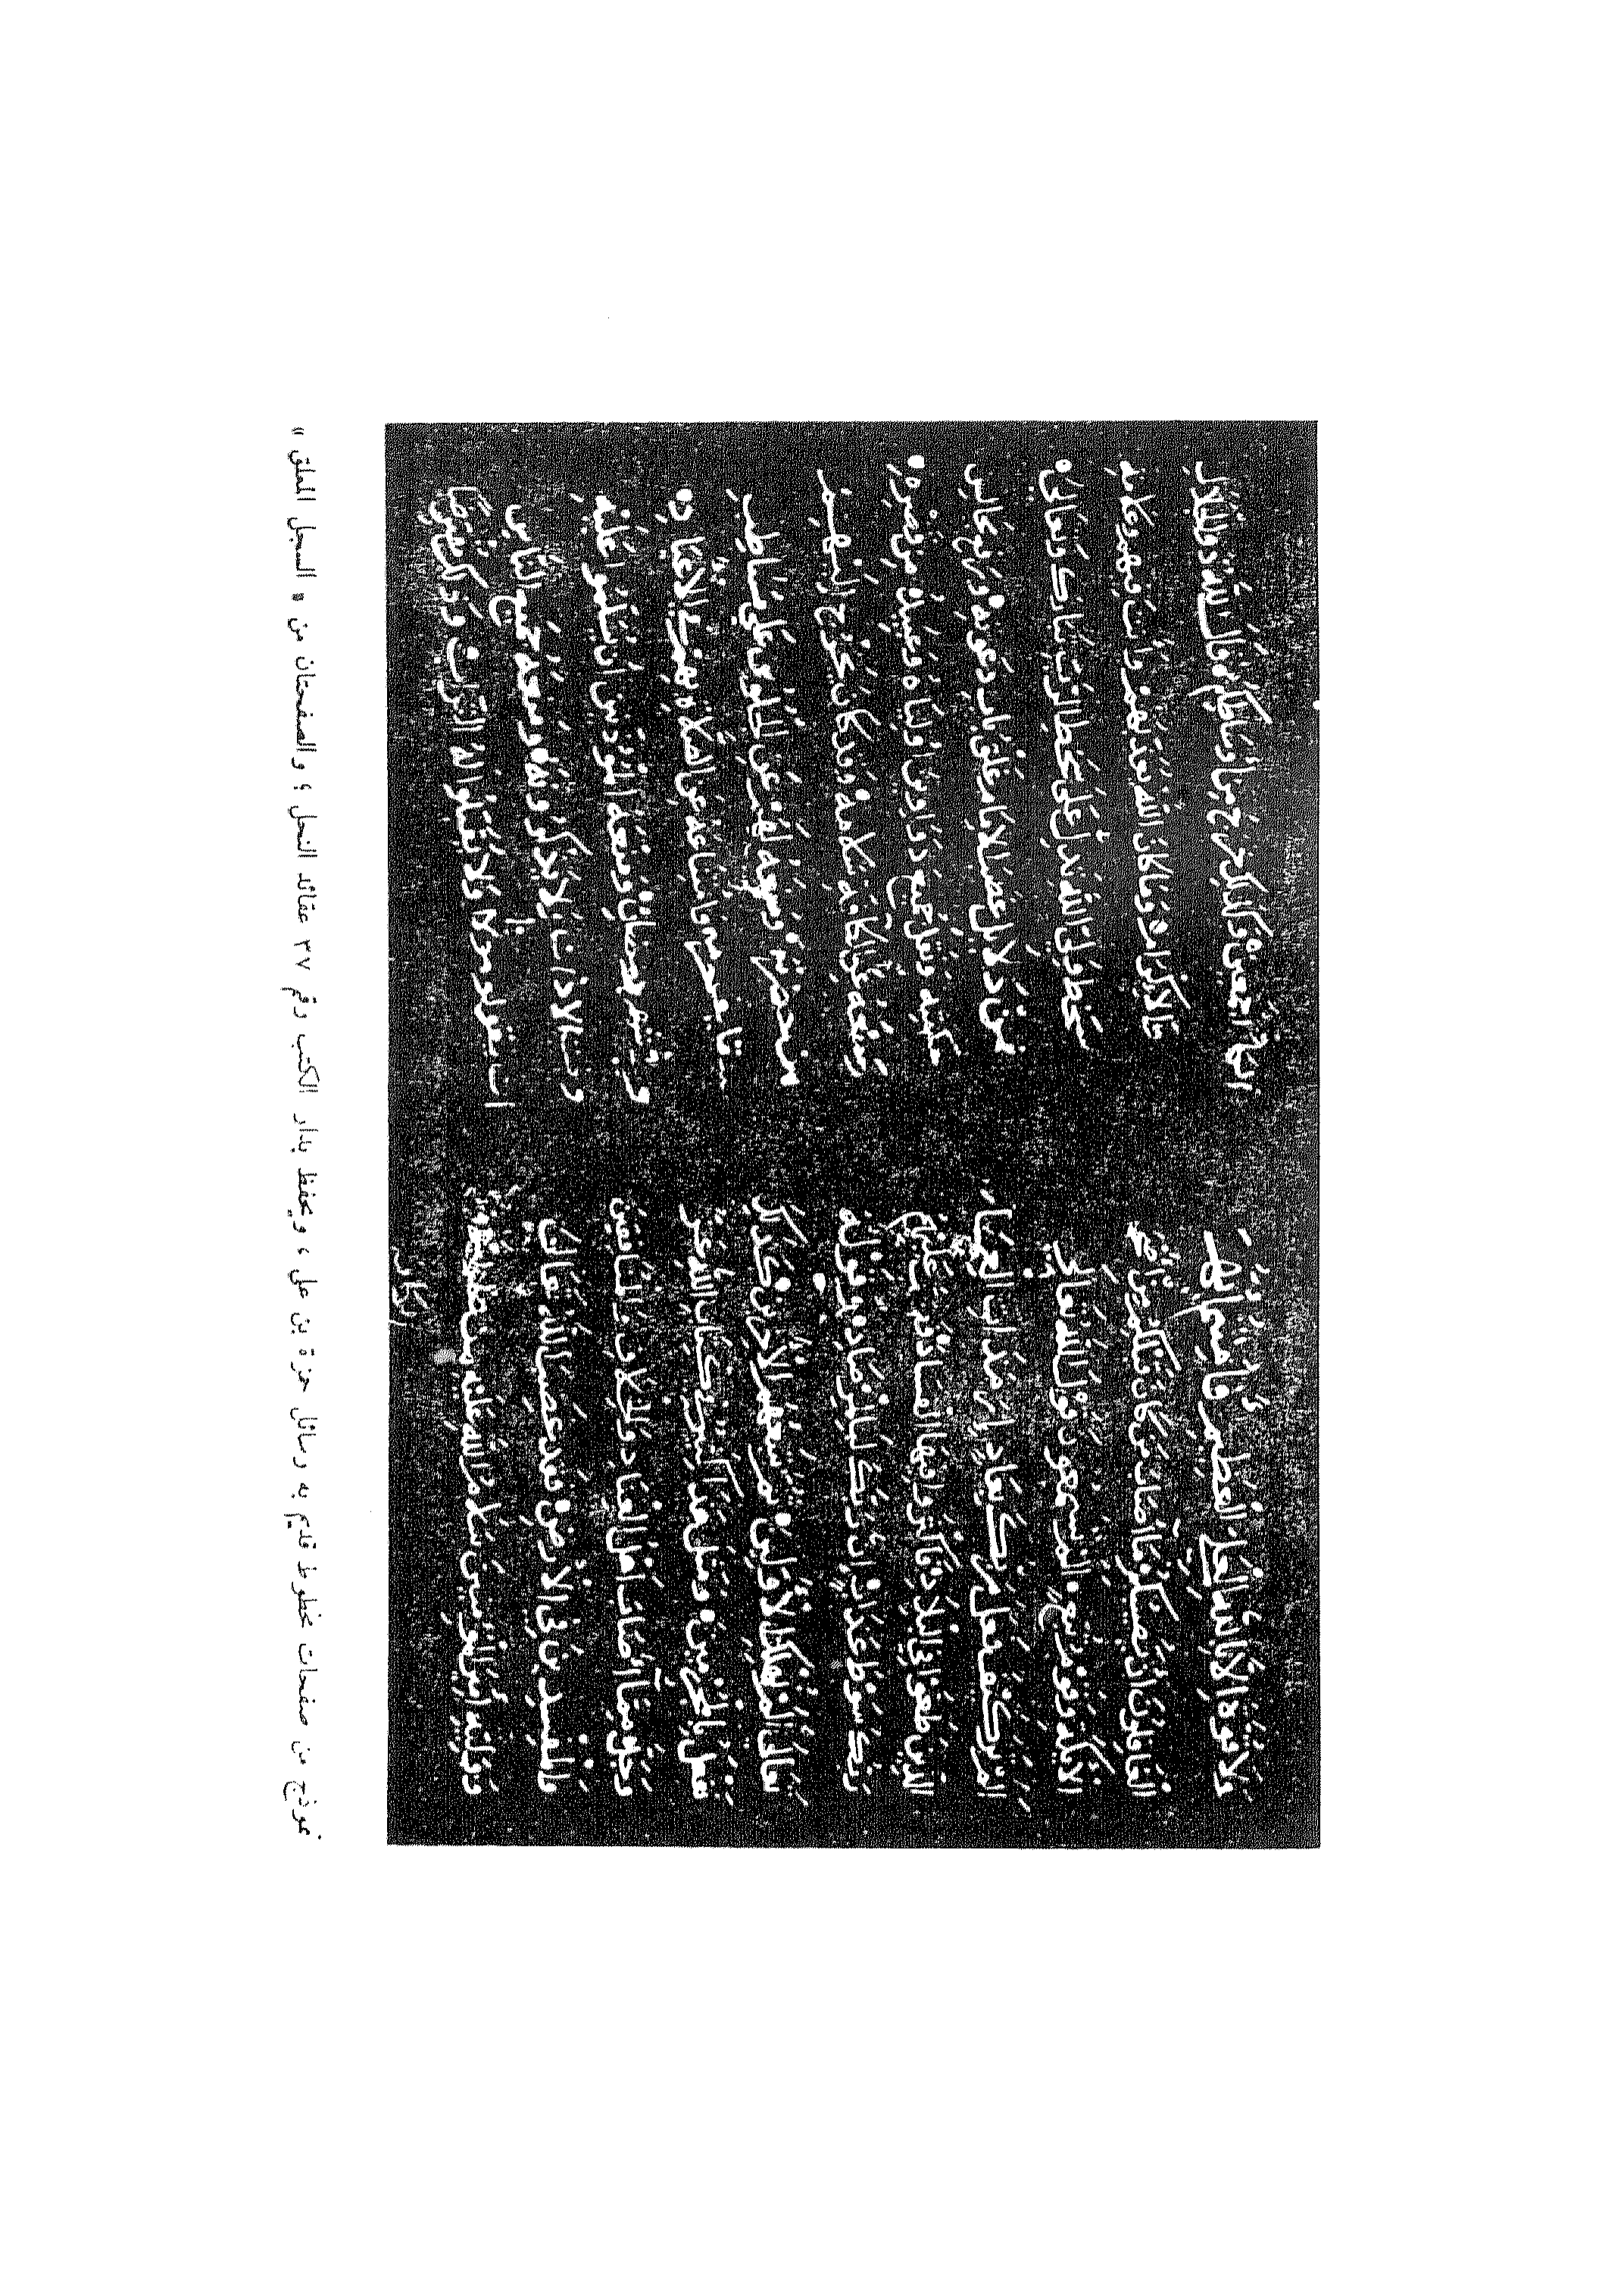 ولا قوة الا بالله العلي العظيم
الناظرون
الافكه
الم تر كيف فعل ربك بعاد ارم ذات العماد
الذين طغوا في البلاد فاكثروا فيها الفساد فصب عليهم
ربك سوط عذاب ان ربك لبالمرصاد وقوله
تعالى الم نهلك الاولين ثم نتبعهم الاخرين كذلك
نفعل بالمجرمين ومثل هذا كثير في كتاب الله عز
وجل مما اصاب اهل الفساد والخلاف
والمفسدين في الارض فقد غضب الله تعالى
ووليه امير المؤمنين سلام الله عليه من عظم
الكافة اجمعين ولذلك خرج من اوساطكم قال الله ذو الجلال
والاكرام وما كان الله ليعذبهم وانت فيهم وعلامة
سخط ولي الله تدل على سخط الخالق تبارك وتعالى
فمن دلائل غضب الامام غلق باب دعوته ورفع مجالس
حكمته ونقل جميع دواوين اوليائه وعبيده من قصره
ومنعه عن الكافة سلامه وقد كان يخرج اليهم
من حضرته ومنعه لهم عن الجلوس على مصاطب
سقايف حرمه وامتناعه عن الصلاة بهم في الاعياد
وفي شهر رمضان ومنعه الموذنين ان يسلموا عليه
وقت الاذان ولا يذكرونه ومنعه جميع الناس
ان يقولوا مولانا ولا يقبلوا له التراب وذلك
نموذج من صفحات مخطوط قديم به رسائل حمزة بن علي ، ويحفظ بدار الكتب رقم ٣٧ عقائد النحل ؛ والصفحتان من « السجل المعلق »